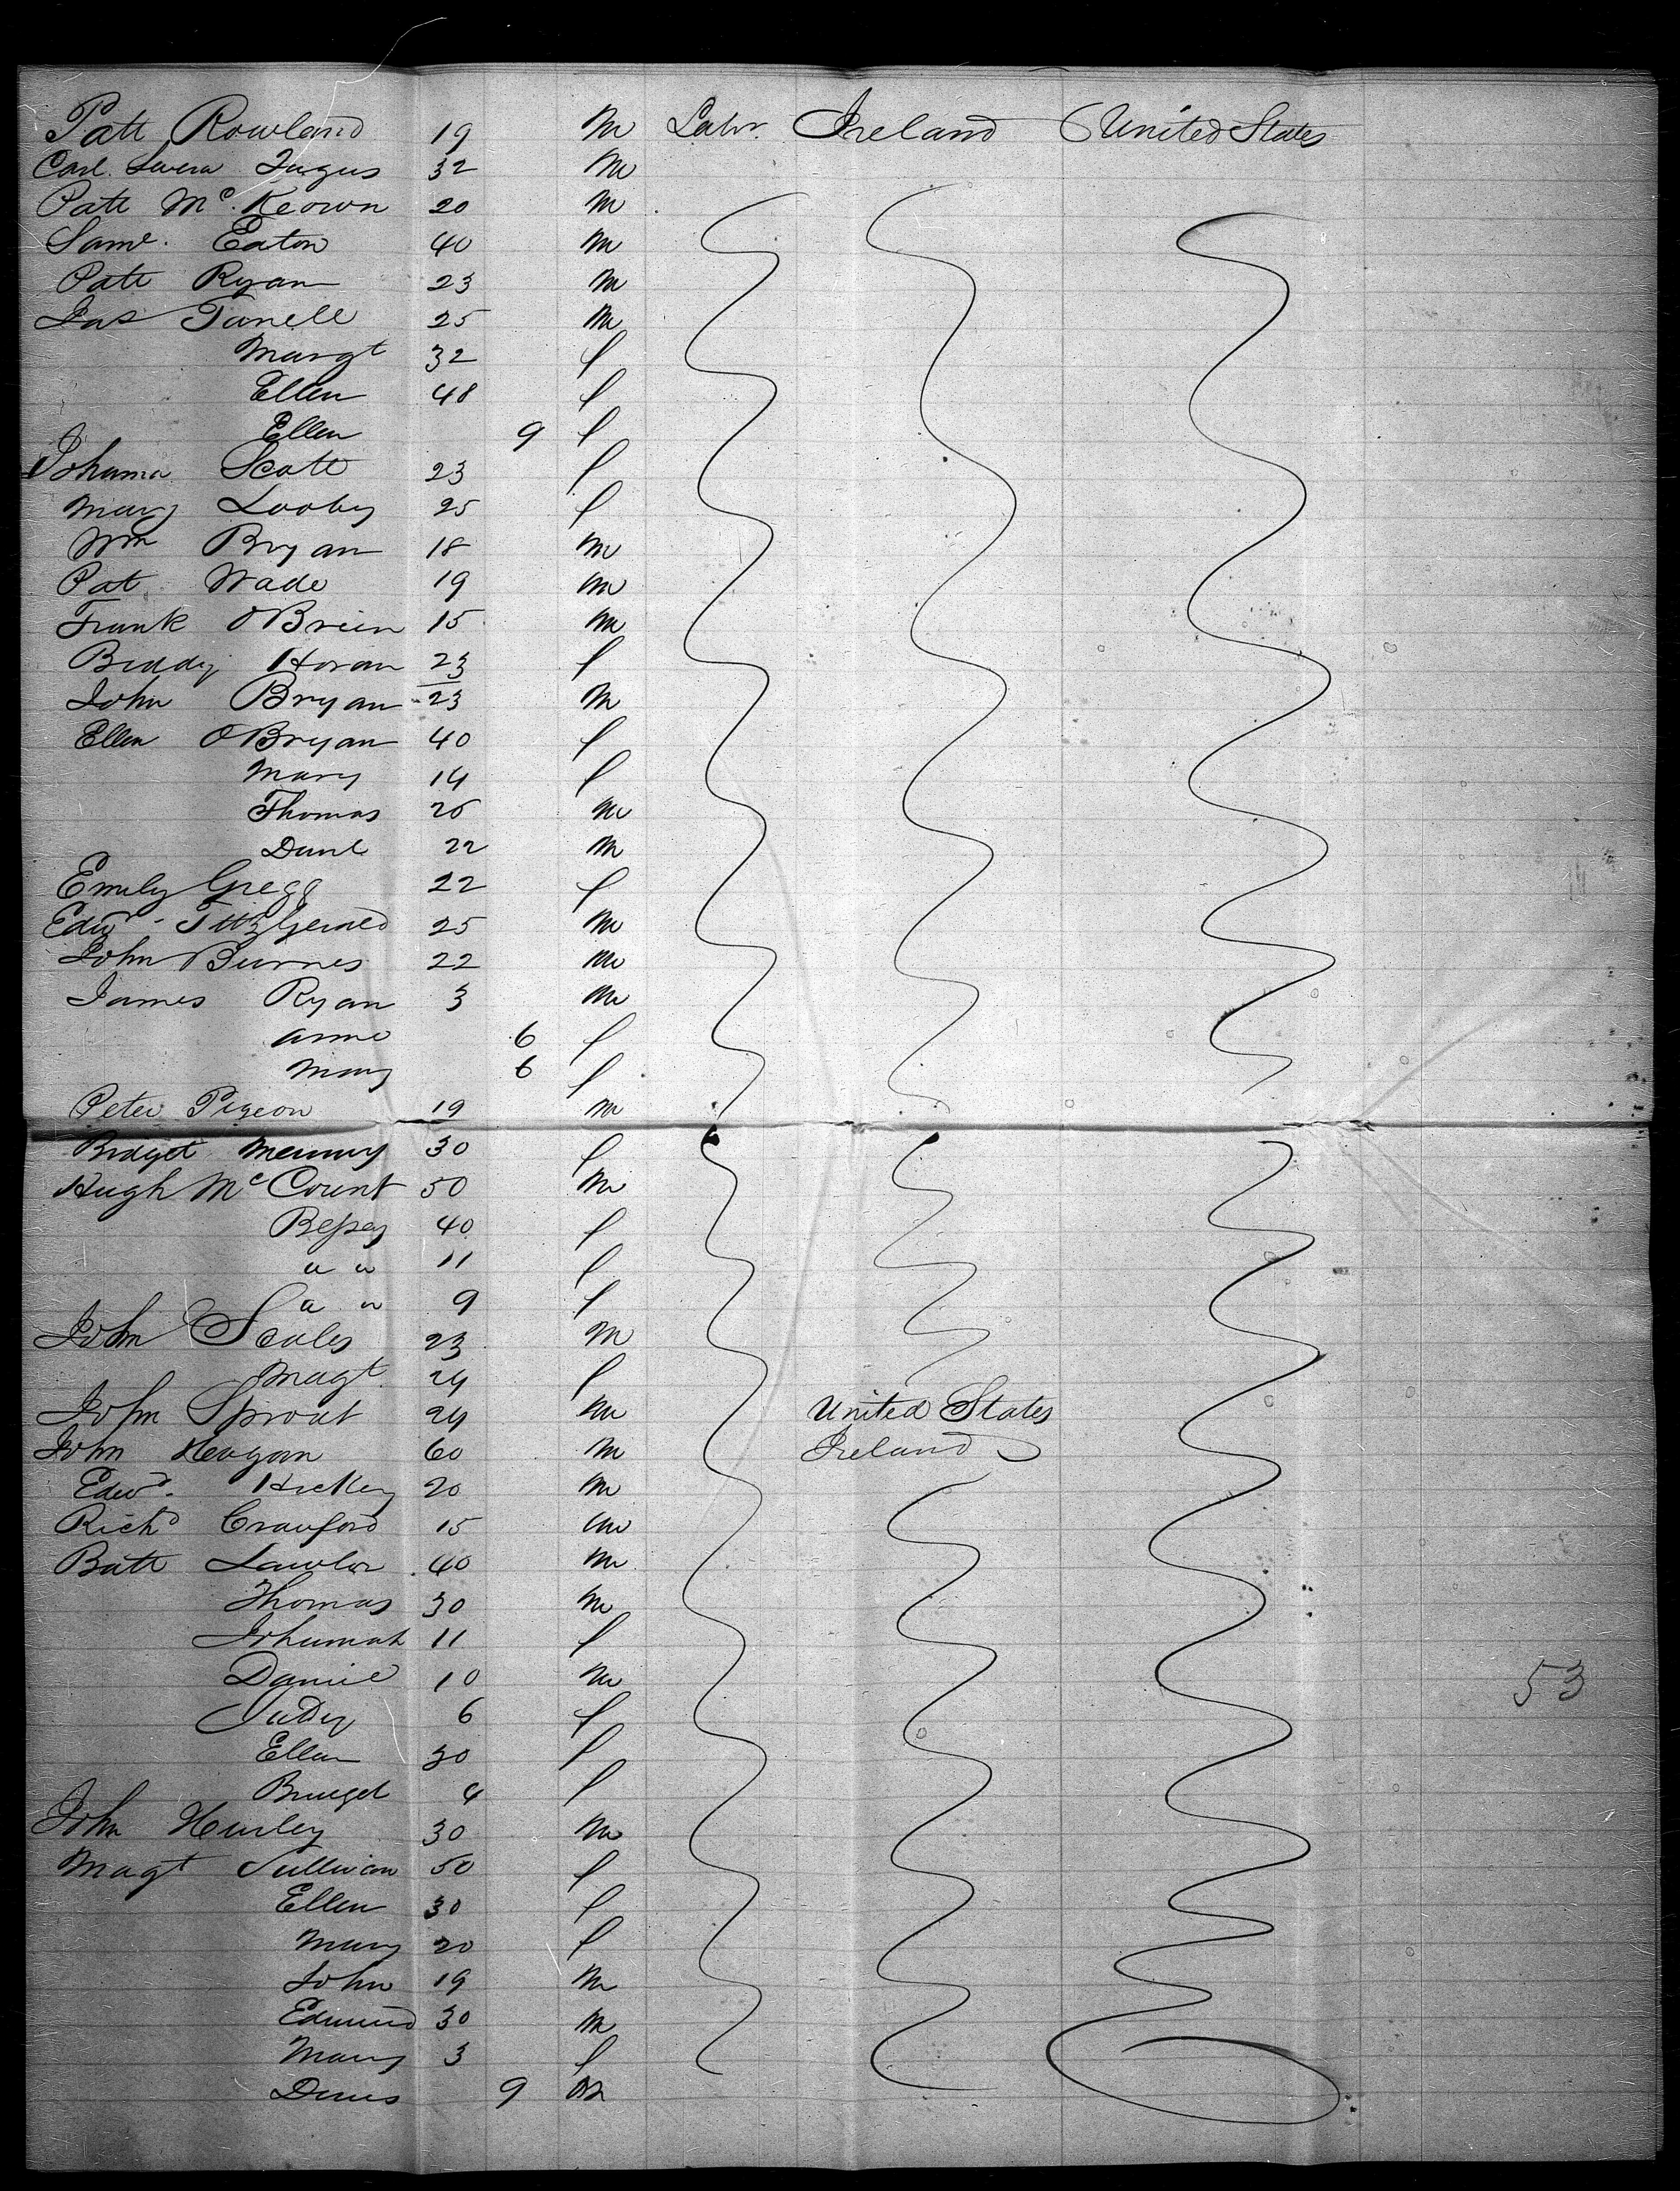 Patt Rowland 19 m Labr. Ireland United States
Carl. 32 m
Patt Mc. Keown 20 m
Saml. Eaton 40 m
Patt Ryan 23 m
Jas 25 m
Margt 32 f
Ellen 48 f
Ellen 9 f
Johanna Scott 23 f
Mary Looby 25 f
Wm Bryan 18 m
Pat. Wade 19 m
Frank OBrien 15 m
Biddy Horan 23 f
John Bryan 23 m
Ellen OBryan 40 f
Mary 14 f
Thomas 26 m
Danl 22 m
Emily Gregg 22 f
Edwd. FittzGerald 25 m
John Burnes 22 m
James Ryan 3 m
Anne 6 f
Mary 6 f
Peter Pigeon 19 m
Bridget 30 f
Hugh Mc Count 50 m
Bessey 40 f
" " 11 f
" " 9 f
John Scales 23 m
Magt 24 f
John Sprout 24 m United States
John Heagan 60 m Ireland
Edwd. Hickey 20 m
Richd Crauford 15 m
Batt Lawlor 40 m
Thomas 30 m
Johannah 11 f
Daniel 10 m
Judy 6 f
53
Ellen 30 f
Bridget 4 f
John Hurley 30 m
Magt Sullivan 50 f
Ellen 30 f
Mary 20 f
John 19 m
Edmund 30 m
Mary 3 f
Denis 9 m